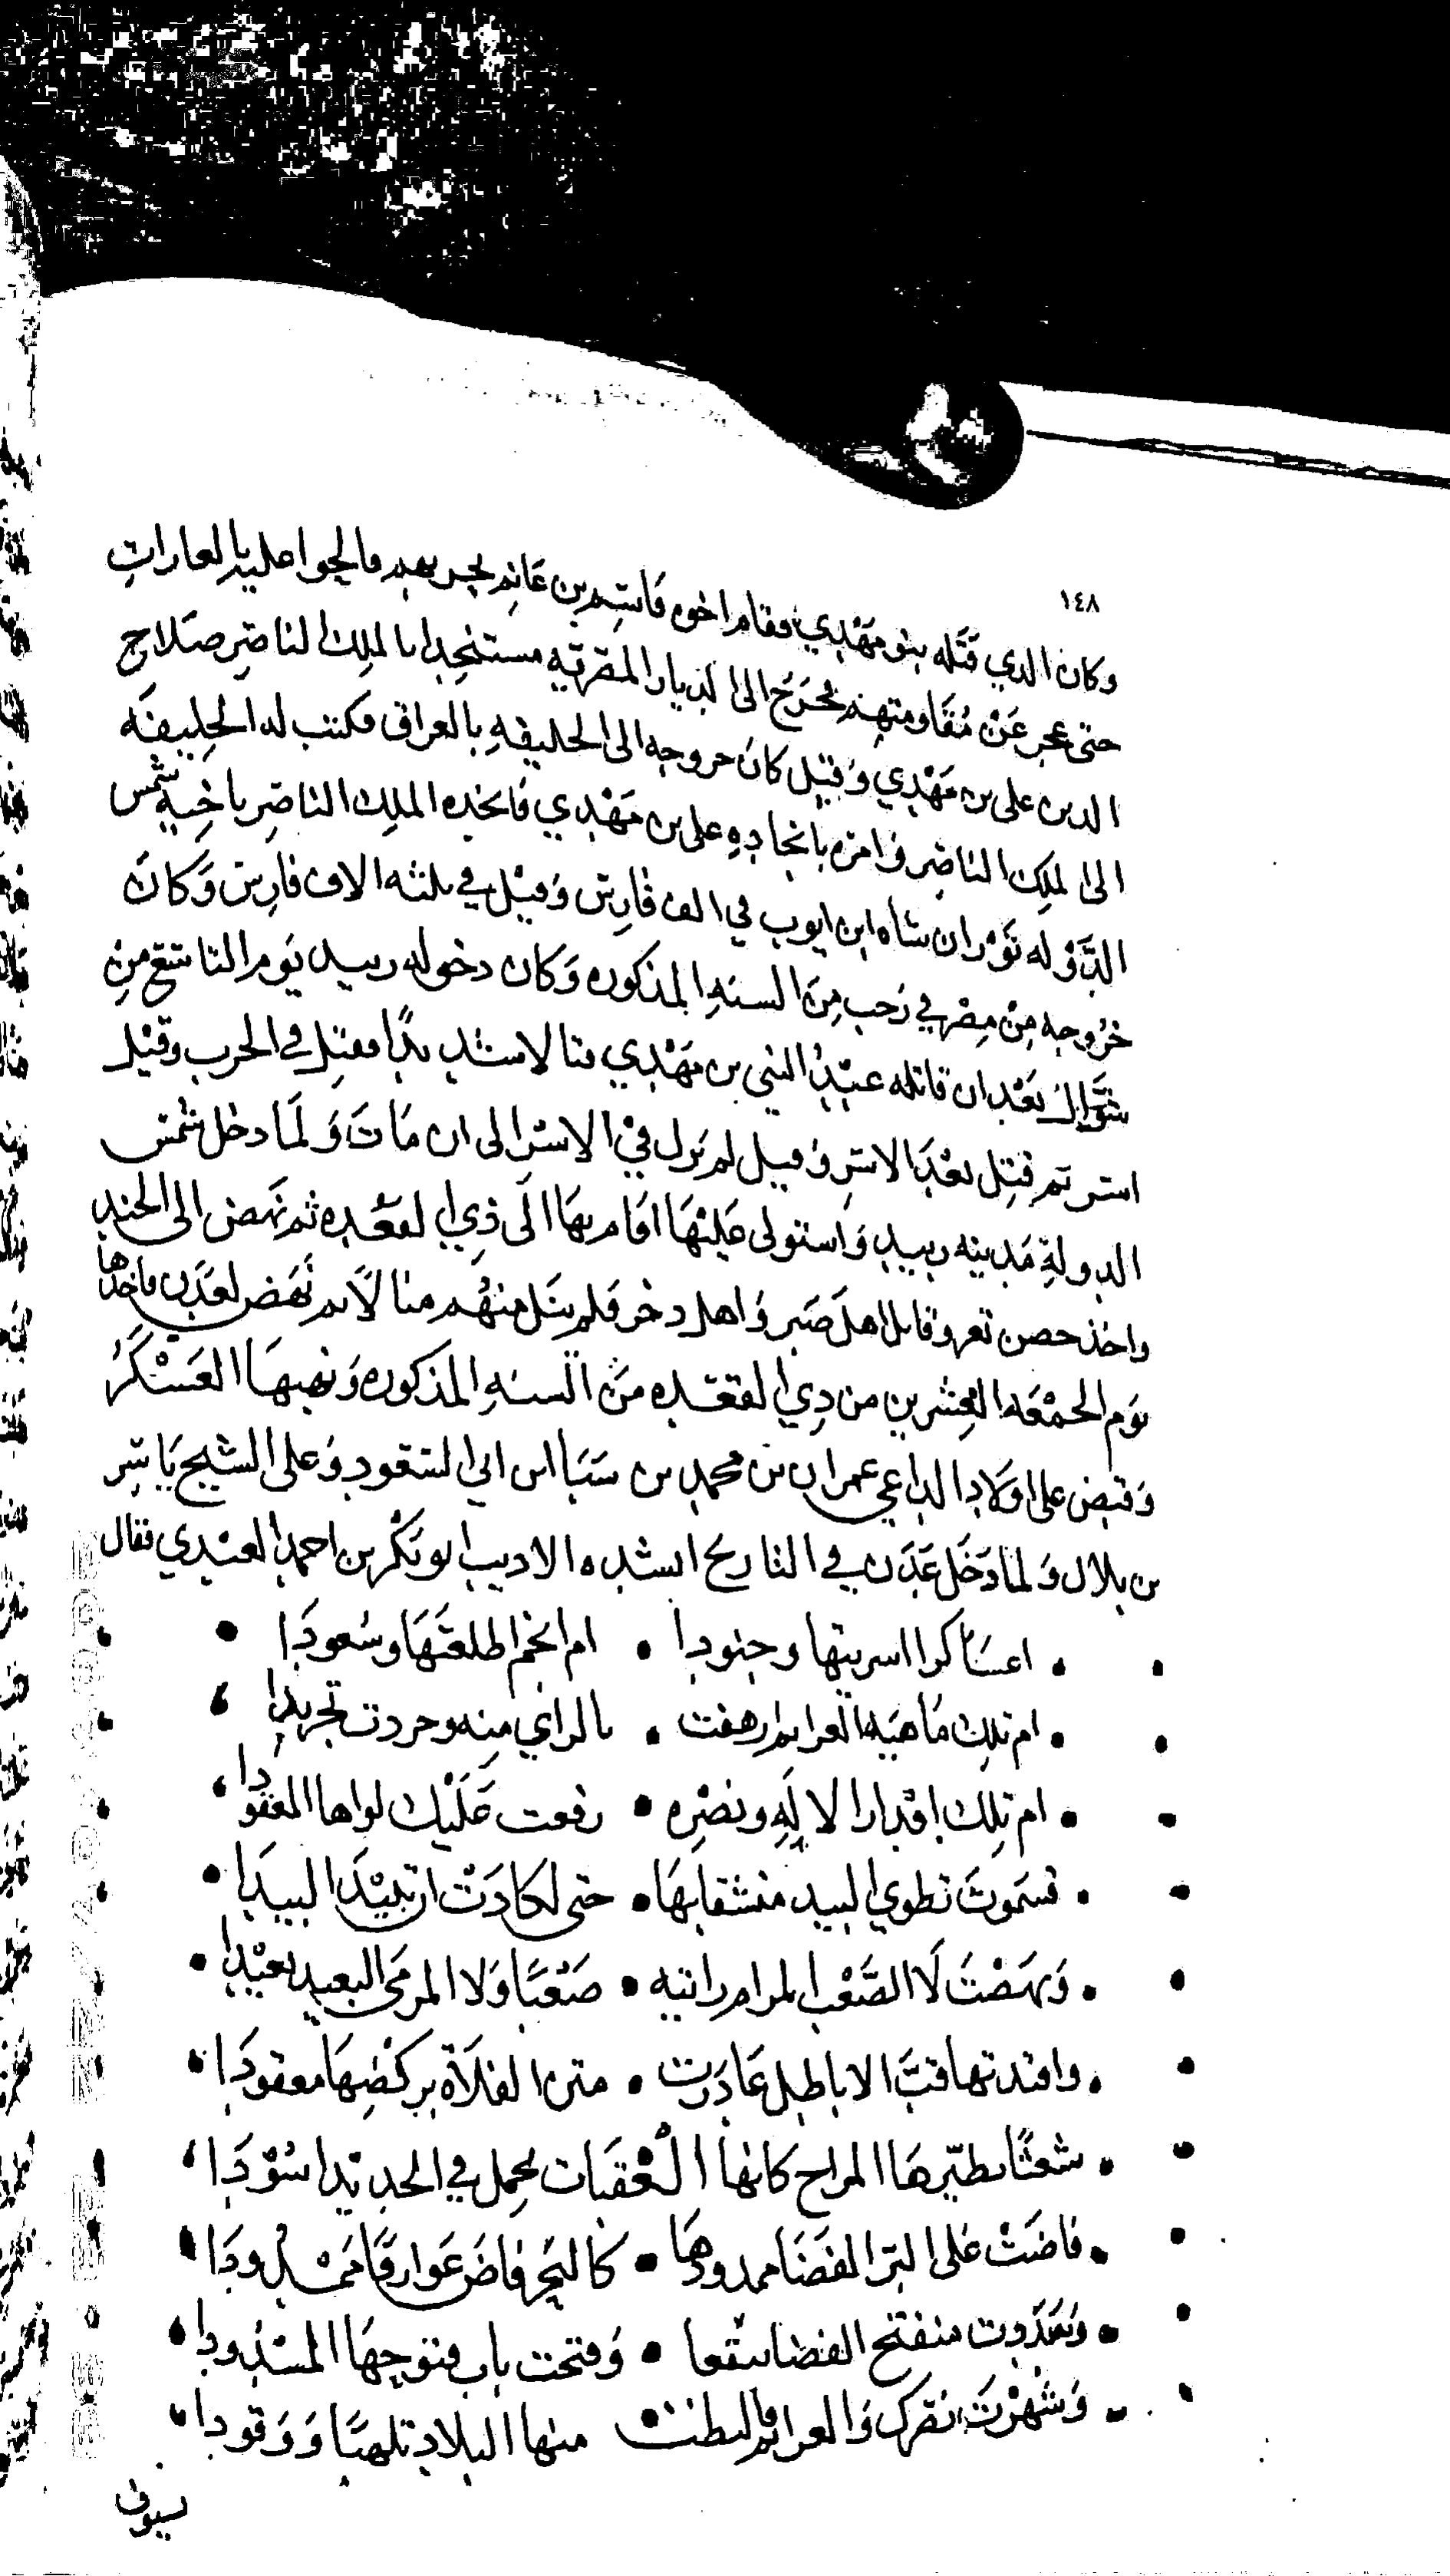 ١٤٨
وكان الدي قتله بنو مهدي فقام اخوه قاسم بن غانم بعده والحوا عليه بالعارات
حتى عجز عن مقاومتهم فخرج الى الديار المصريه مستنجدا بالملك الناصر صلاح
الدين على بن مهدي وقيل كان خروجه الى الخليفه بالعراق فكتب له الخليفه
الى الملك الناصر وامره بانجاده على بن مهدي فانجده الملك الناصر باخيه شمس
الدوله توران شاه ابن ايوب في الف فارس وقيل في ثلثه الاف فارس وكان
خروجه من مصر في رجب من السنه المذكوره وكان دخوله زبيد يوم التاسع من
شوال بعد ان قاتله عبد النبي بن مهدي قتالا شديدا فقتل في الحرب وقيل
اسر ثم قتل بعد الاسر وقيل لم يزل في الاسر الى ان مات ولما دخل شمس
الدولة مدينه زبيد واستولى عليها اقام بها الى ذي القعده ثم نهض الى الجند
واخذ حصن تعز وقاتل اهل صبر واهل ذخر فلم ينل منهم منالا ثم نهض لعدن فاخذها
يوم الجمعه العشرين من ذي القعده من السنه المذكوره ونهبها العسكر
وقبض على اولاد الداعي عمران بن محمد بن سبا ابن ابي السعود وعلى الشيخ ياسر
بن بلال ولما دخل عدن في التاريخ انشده الاديب ابو بكر بن احمد العيدي فقال
اعساكرا اسريتها وجنودا • ام انجم اطلعتها وسعودا
ام تلك ماضيه العزايم ارهفت • بالراي منه وجردت تجريدا
ام تلك اقدار الاله ونصره • رفعت عليك لواها المعقودا
فسموت تطوي البيد منشقا بها • حتى لكادت ان تبيد البيدا
ونهضت لا الصعب المرام رايته • صعبا ولا المرمى البعيد بعيدا
واقتدتها قب الاياطل غادرت • متن الفلاة بركضها معقودا
شعثا يطيرها المراح كانها العقبات تحمل في الحديد اسودا
فاضت على البر الفضا ممدودها • كالبحر فاض عوارقا ممدودا
منفتح الفضا • وفتحت باب فتوحها المسدودا
وشهرت نصرك والعزايم منها البلاد تلهبا ووقودا
سيوف